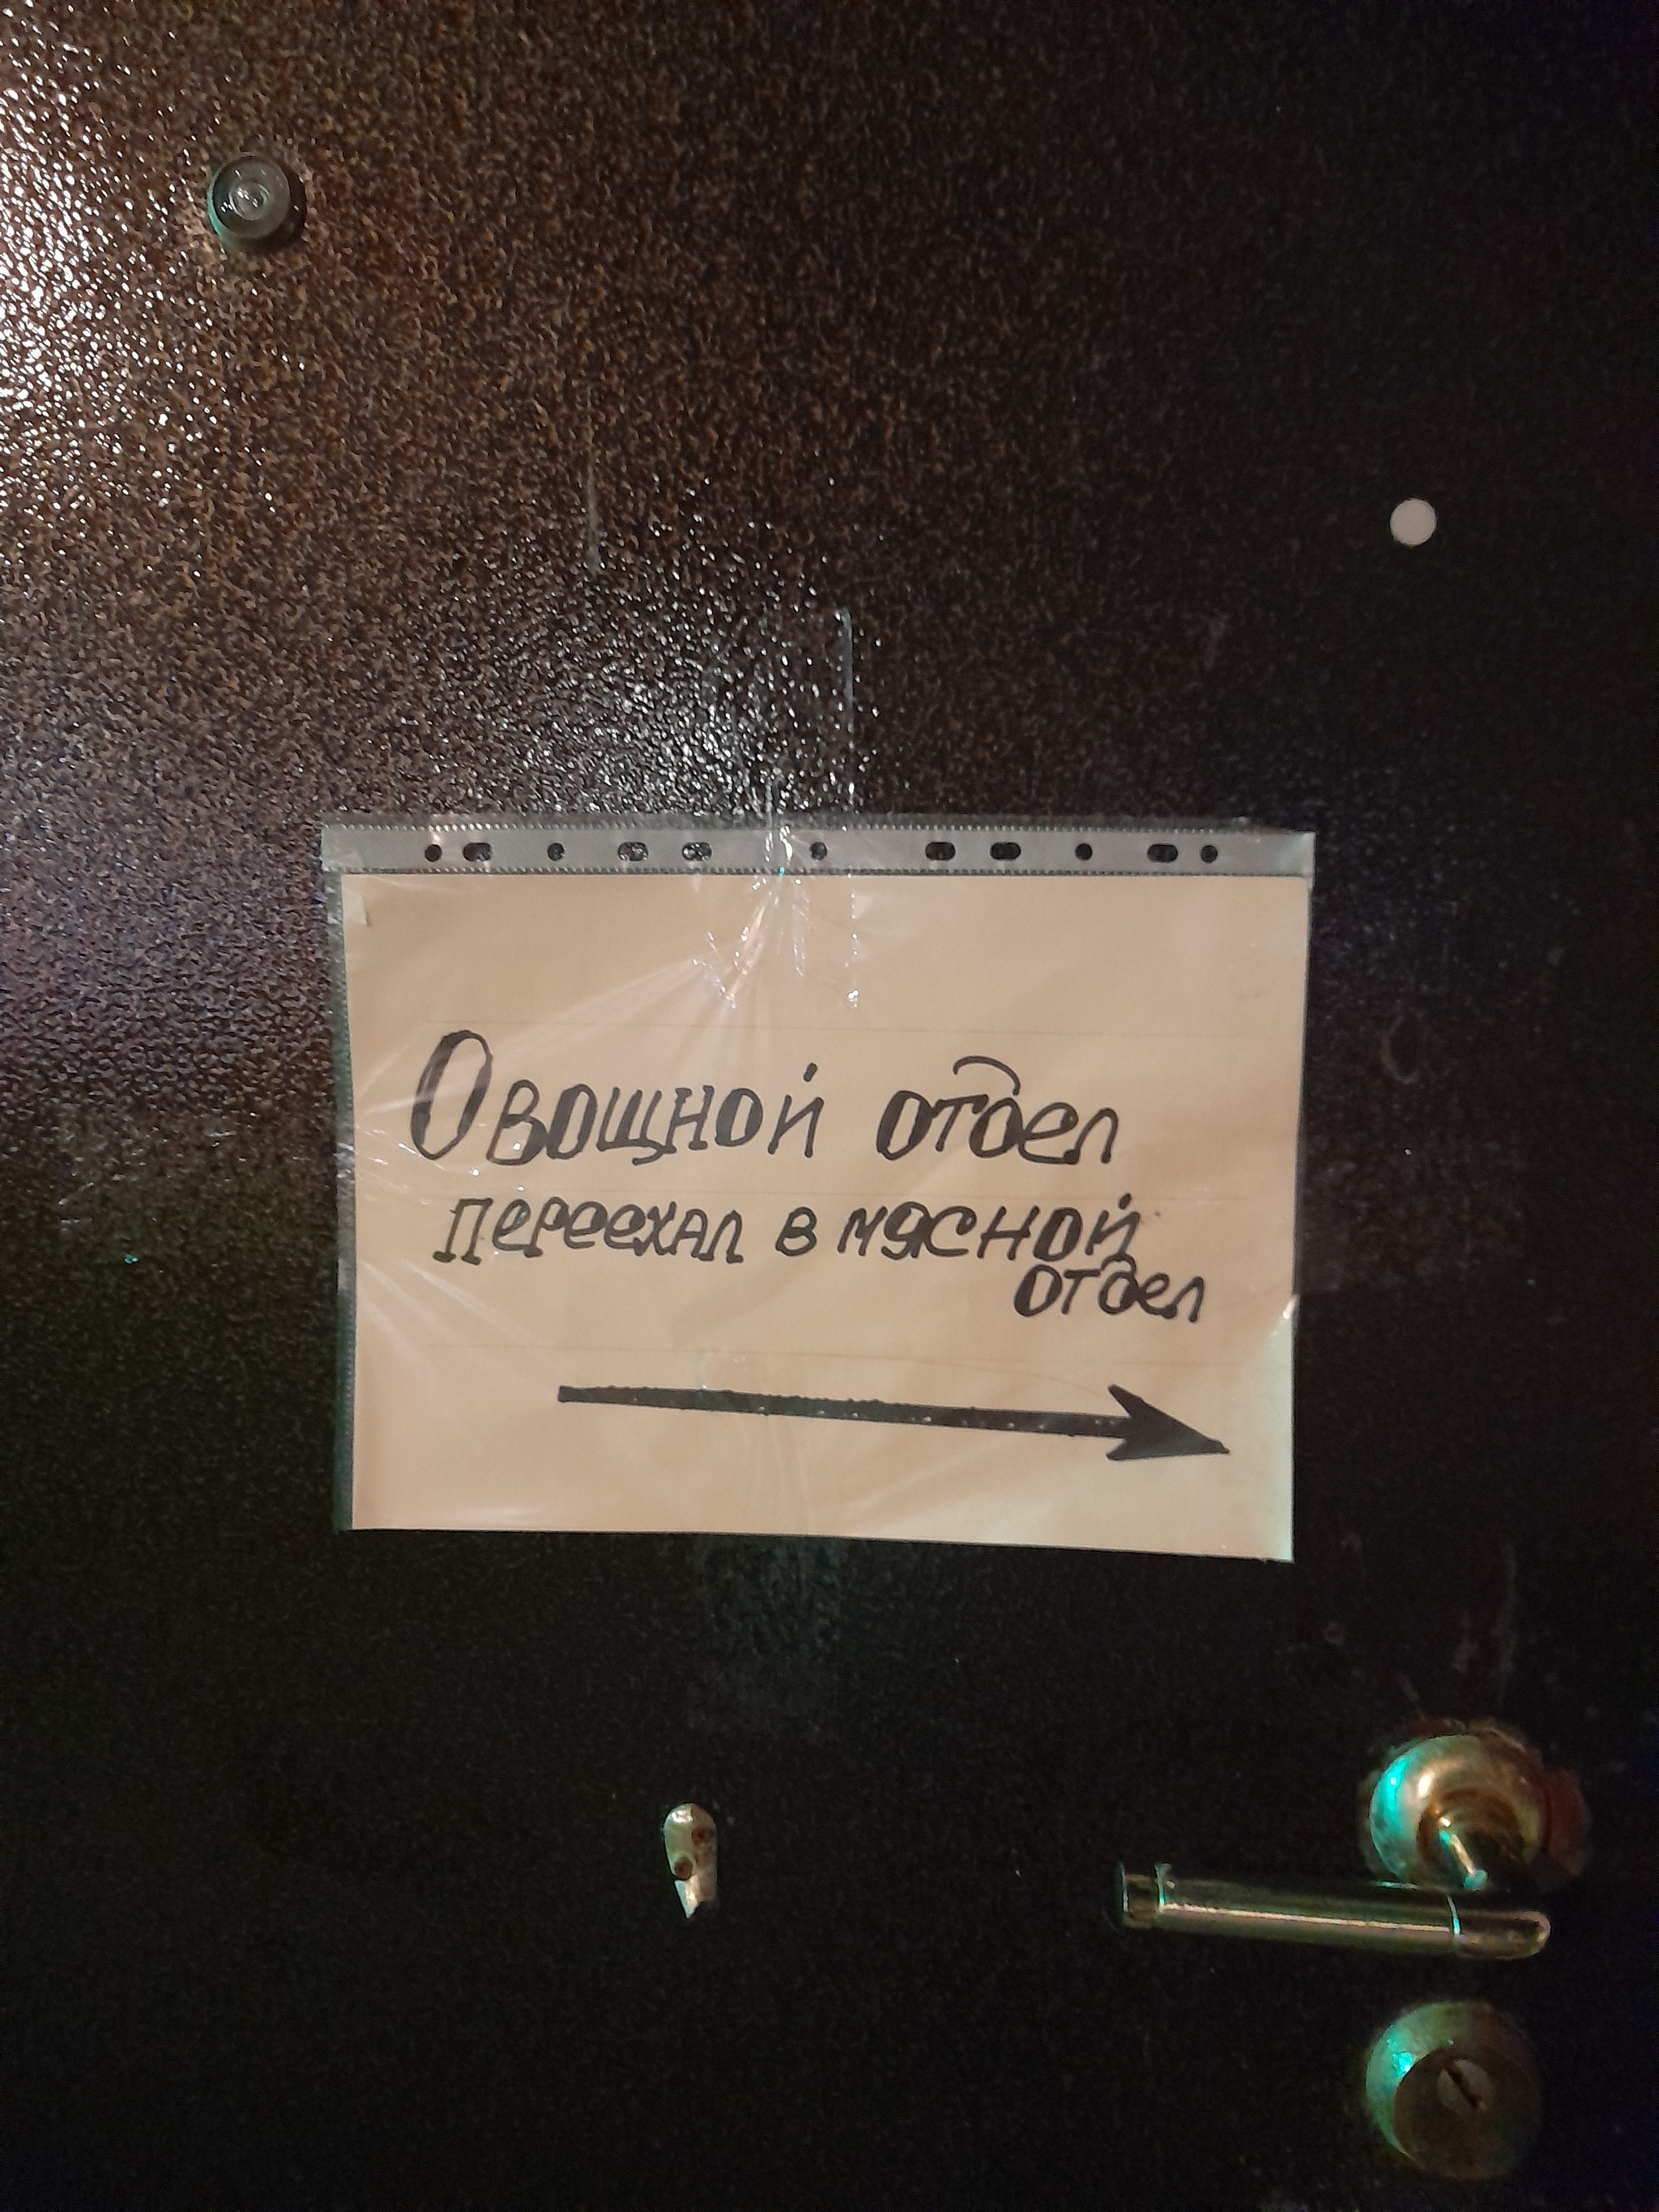 Овощной отдел
переехал в мясной
отдел